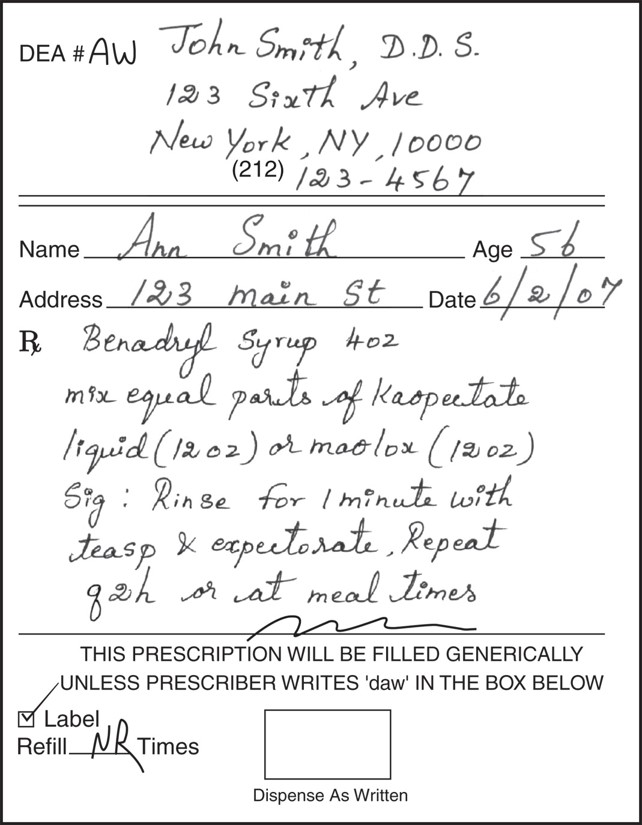 DEA # AW John Smith, D.D.S.
123 Sixth Ave
New York, NY, 10000
(212) 123-4567
Name Ann Smith Age 56
Address 123 main St Date 6/2/07
℞ Benadryl Syrup 4oz
mix equal parts of Kaopectate
liquid (12oz) or maolox (12oz)
Sig: Rinse for 1 minute with
teasp & expectorate, Repeat
q2h or at meal times
THIS PRESCRIPTION WILL BE FILLED GENERICALLY
UNLESS PRESCRIBER WRITES 'daw' IN THE BOX BELOW
Label
Refill NR Times
Dispense As Written